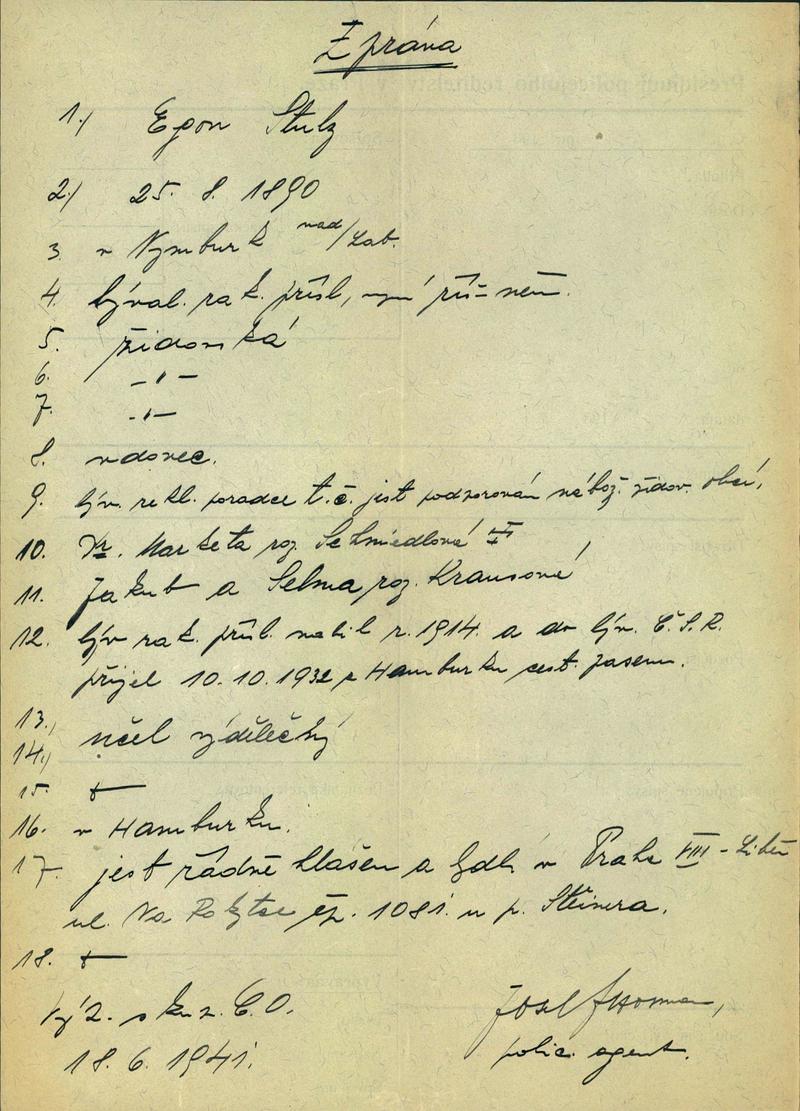 Zpráva
1./ Egon Stulz
2/ 25. 8. 1890
3. v Nymburk nad/Lab.
4. býval. rak. přísl., nyní říš-něm.
5. židovská
6. -"-
7. -"-
8. vdovec.
9. býv. rekl. poradce t.č. jest podporován nábož. židov. obcí,
10. Markéta roz. Schmiedlová
11. Jakub a Selma roz. Krausové
12. býv. rak. přísl. nabil r. 1914. a do býv. Č.S.R.
přijel 10. 10. 1932 z Hamburku cest. pasem.
13.,
14., účel výdělečný
15.
16. v Hamburku.
17. jest řádně hlášen a bydlí v Praha VIII - Libeň
ul. Na Rokytce čp. 1081. u p. Steinera.
18.
18. 6. 1941.
Josef
polic. agent.